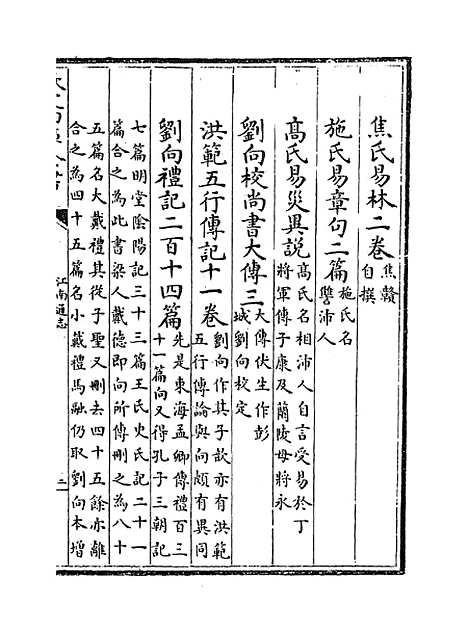 焦氏易林二卷焦贛自撰
施氏易章句二篇施氏名讐沛人
高氏易災異說高氏名相沛人自言受易於丁將軍傳子康及蘭陵毋將永
劉向校尚書大傳三大傳伏生作彭城劉向校定
洪範五行傳記十一卷劉向作其子歆亦有洪範五行傳論與向頗有異同
劉向禮記二百十四篇先是東海孟卿傳禮百三十一篇向又得孔子三朝記
七篇明堂陰陽記三十三篇王氏史氏記二十一
篇合之為此書梁人戴德即向所傳刪之為八十
五篇名大戴禮其從子聖又刪去四十五餘亦離
合之為四十五篇名小戴禮馬融仍取劉向本增
江南通志
二